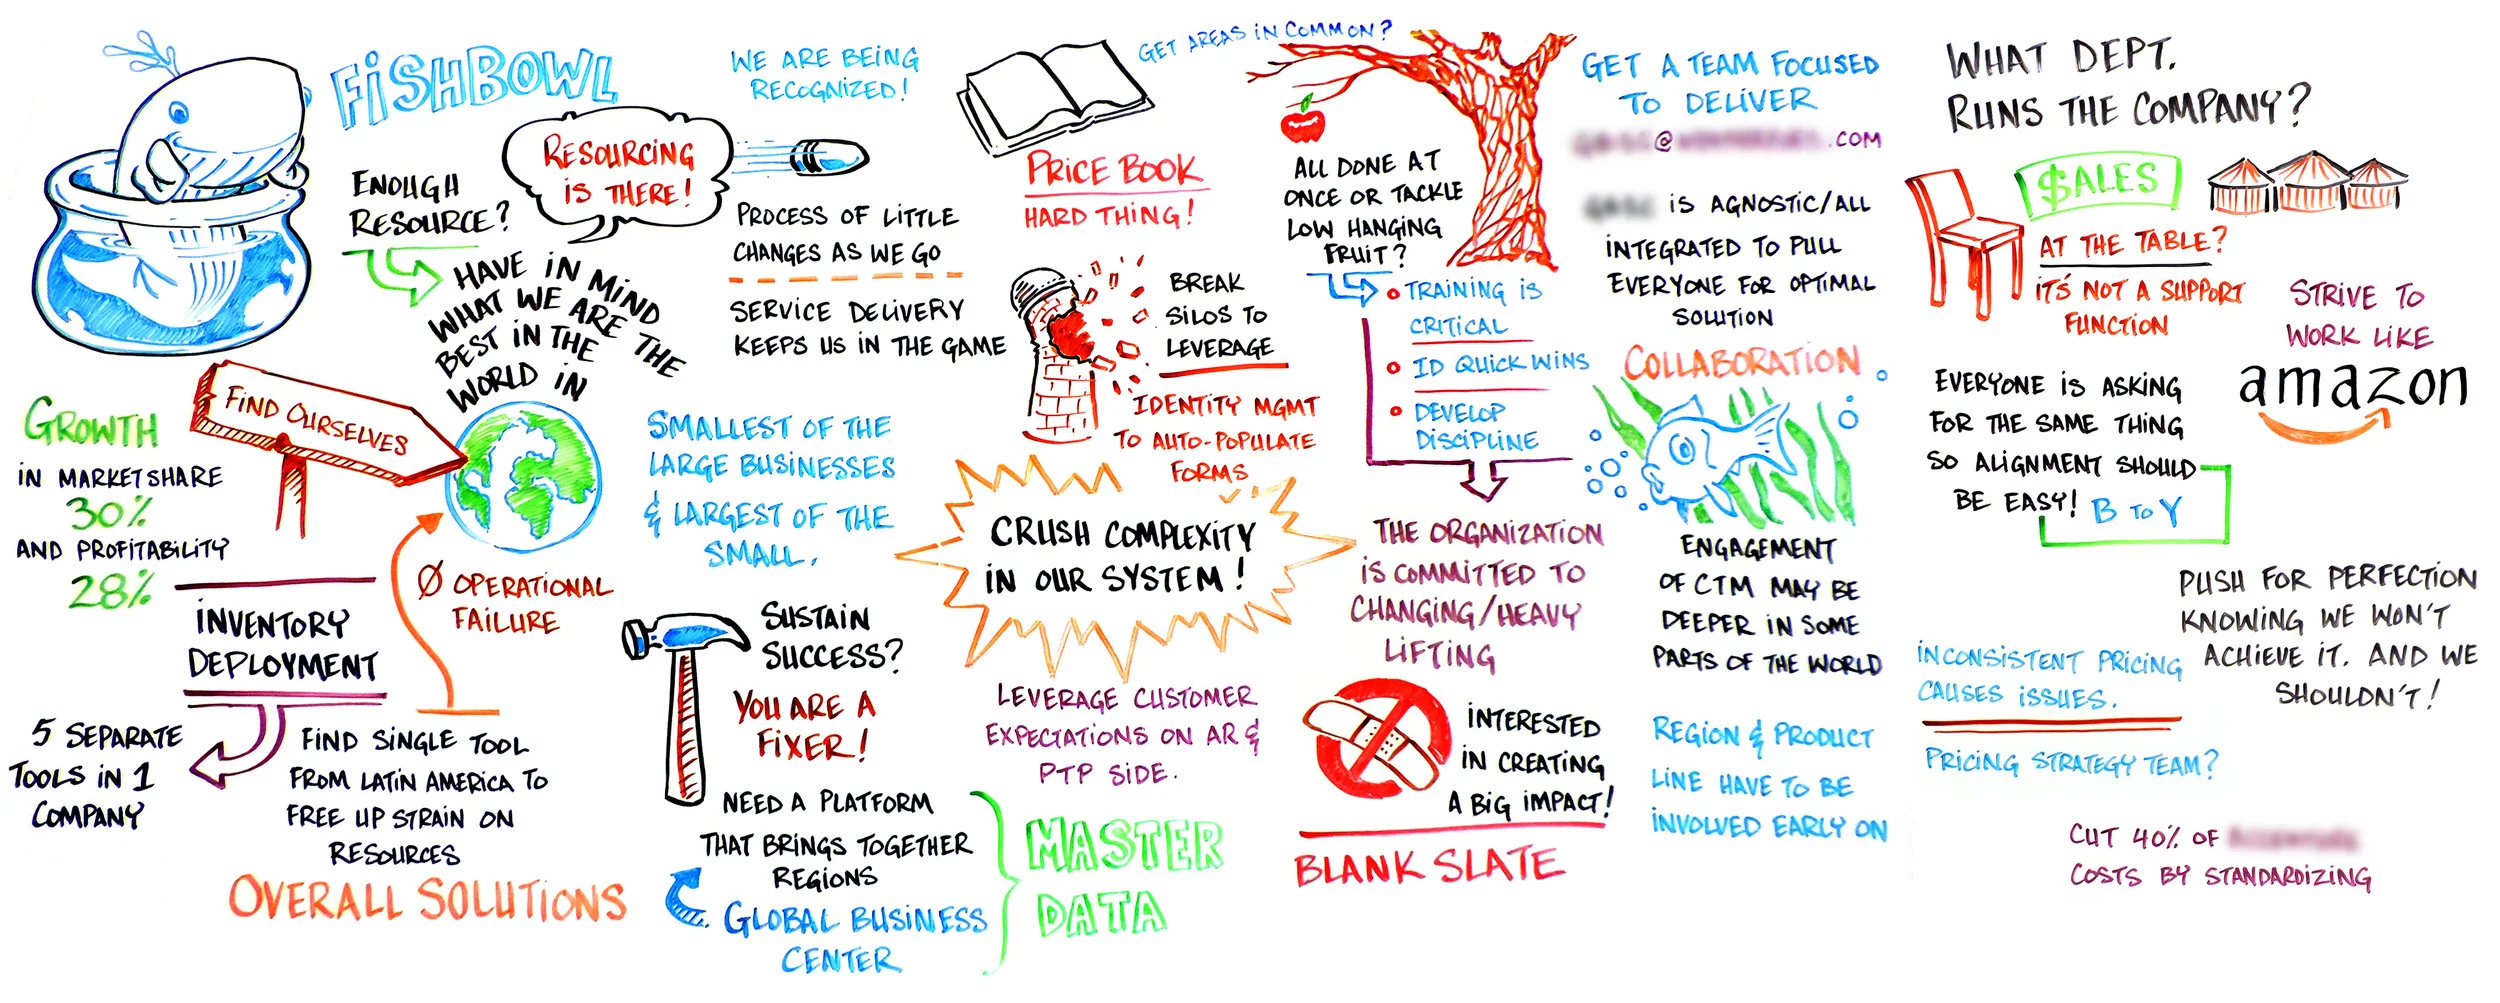 FISHBOWL
ENOUGH
RESOURCE?
RESOURCING
IS THERE!
HAVE IN MIND
WHAT WE ARE THE
BEST IN THE
WORLD IN
FIND OURSELVES
GROWTH
IN MARKETSHARE
30%
AND PROFITABILITY
28%
INVENTORY
DEPLOYMENT
5 SEPARATE
TOOLS IN 1
COMPANY
FIND SINGLE TOOL
FROM LATIN AMERICA TO
FREE UP STRAIN ON
RESOURCES
OVERALL SOLUTIONS
Ø OPERATIONAL
FAILURE
WE ARE BEING
RECOGNIZED!
PROCESS OF LITTLE
CHANGES AS WE GO
SERVICE DELIVERY
KEEPS US IN THE GAME
SMALLEST OF THE
LARGE BUSINESSES
& LARGEST OF THE
SMALL.
SUSTAIN
SUCCESS?
YOU ARE A
FIXER!
NEED A PLATFORM
THAT BRINGS TOGETHER
REGIONS
GLOBAL BUSINESS
CENTER
MASTER
DATA
GET AREAS IN COMMON?
PRICE BOOK
HARD THING!
BREAK
SILOS TO
LEVERAGE
IDENTITY MGMT
TO AUTO-POPULATE
FORMS
CRUSH COMPLEXITY
IN OUR SYSTEM!
LEVERAGE CUSTOMER
EXPECTATIONS ON AR &
PTP SIDE.
ALL DONE AT
ONCE OR TACKLE
LOW HANGING
FRUIT?
TRAINING IS
CRITICAL
ID QUICK WINS
DEVELOP
DISCIPLINE
THE ORGANIZATION
IS COMMITTED TO
CHANGING/HEAVY
LIFTING
INTERESTED
IN CREATING
A BIG IMPACT!
BLANK SLATE
GET A TEAM FOCUSED
TO DELIVER
@ .COM
IS AGNOSTIC/ALL
INTEGRATED TO PULL
EVERYONE FOR OPTIMAL
SOLUTION
COLLABORATION
ENGAGEMENT
OF CTM MAY BE
DEEPER IN SOME
PARTS OF THE WORLD
REGION & PRODUCT
LINE HAVE TO BE
INVOLVED EARLY ON
WHAT DEPT.
RUNS THE COMPANY?
$ALES
AT THE TABLE?
IT'S NOT A SUPPORT
FUNCTION
STRIVE TO
WORK LIKE
amazon
EVERYONE IS ASKING
FOR THE SAME THING
SO ALIGNMENT SHOULD
BE EASY! B TO Y
PUSH FOR PERFECTION
KNOWING WE WON'T
ACHIEVE IT. AND WE
SHOULDN'T!
INCONSISTENT PRICING
CAUSES ISSUES.
PRICING STRATEGY TEAM?
CUT 40% OF
COSTS BY STANDARDIZING